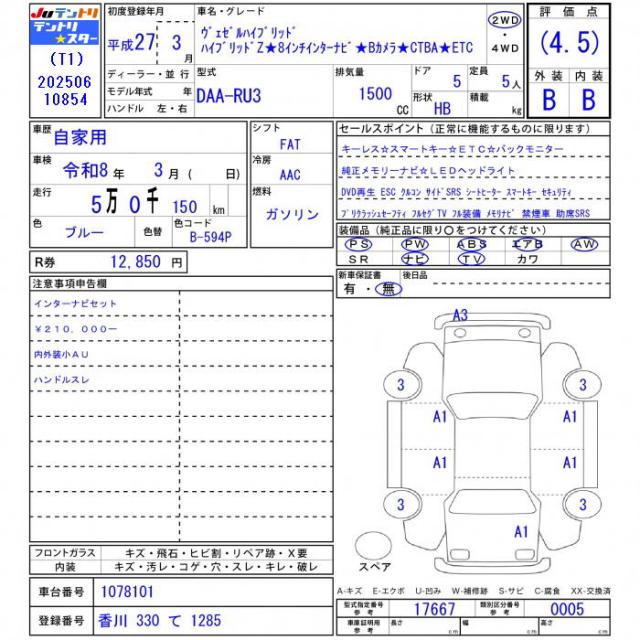 JUテントリ
テントリ
★スター
(T1)
202506
10854
初度登録年月
平成27年 3月
ディーラー・並行
モデル年式 年
ハンドル 左・右
車名・グレード
ヴェゼルハイブリッド
ハイブリッドZ★8インチインターナビ★Bカメラ★CTBA★ETC
2WD
・
4WD
型式
DAA-RU3
排気量
1500
CC
ドア
5
定員
5人
形状
HB
積載
kg
評価点
(4.5)
外装 内装
B B
車歴
自家用
車検
令和8年 3月( 日)
走行
5万0千150km
色
ブルー
色替
色コード
B-594P
シフト
FAT
冷房
AAC
燃料
ガソリン
R券 12,850 円
セールスポイント(正常に機能するものに限ります)
キーレス☆スマートキー☆ETC☆バックモニター
純正メモリーナビ☆LEDヘッドライト
DVD再生 ESC クルコン サイドSRS シートヒーター スマートキー セキュリティ
プリクラッシュセーフティ フルセグTV フル装備 メモリナビ 禁煙車 助席SRS
装備品(純正品に限り〇をつけてください)
PS PW ABS エアB AW
SR ナビ TV カワ
新車保証書
有・無
後日品
注意事項申告欄
インターナビセット
¥210,000ー
内外装小AU
ハンドルスレ
A3
3 3
A1 A1
A1 A1
3 3
A1
スペア
フロントガラス キズ・飛石・ヒビ割・リペア跡・X要
内装 キズ・汚レ・コゲ・穴・スレ・キレ・破レ
A-キズ E-エクボ U-凹み W-補修跡 S-サビ C-腐食 XX-交換済
車台番号 1078101
登録番号 香川 330 て 1285
型式指定番号
参考
17667
類別区分番号
参考
0005
車庫証明用
参考
長さ
cm
幅
cm
高さ
cm